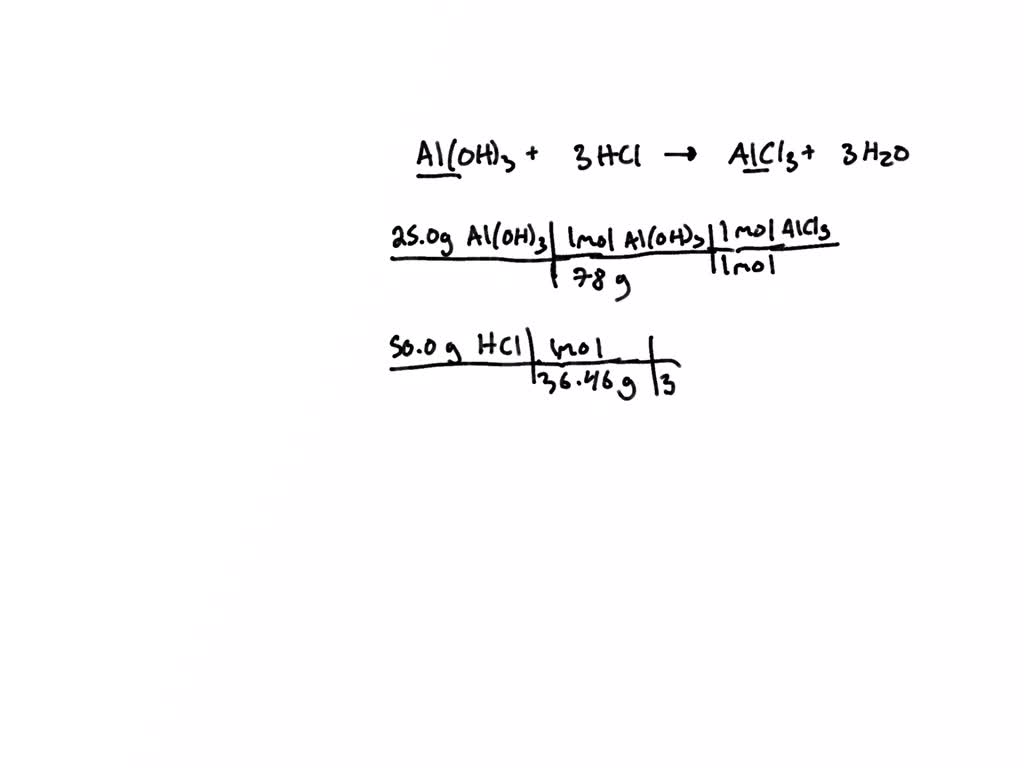 Al(OH)3 + 3HCl → AlCl3 + 3H2O
25.0g Al(OH)3 | 1mol Al(OH)3 | 1 mol AlCl3
78 g | 1mol
50.0 g HCl | mol
36.46 g | 3